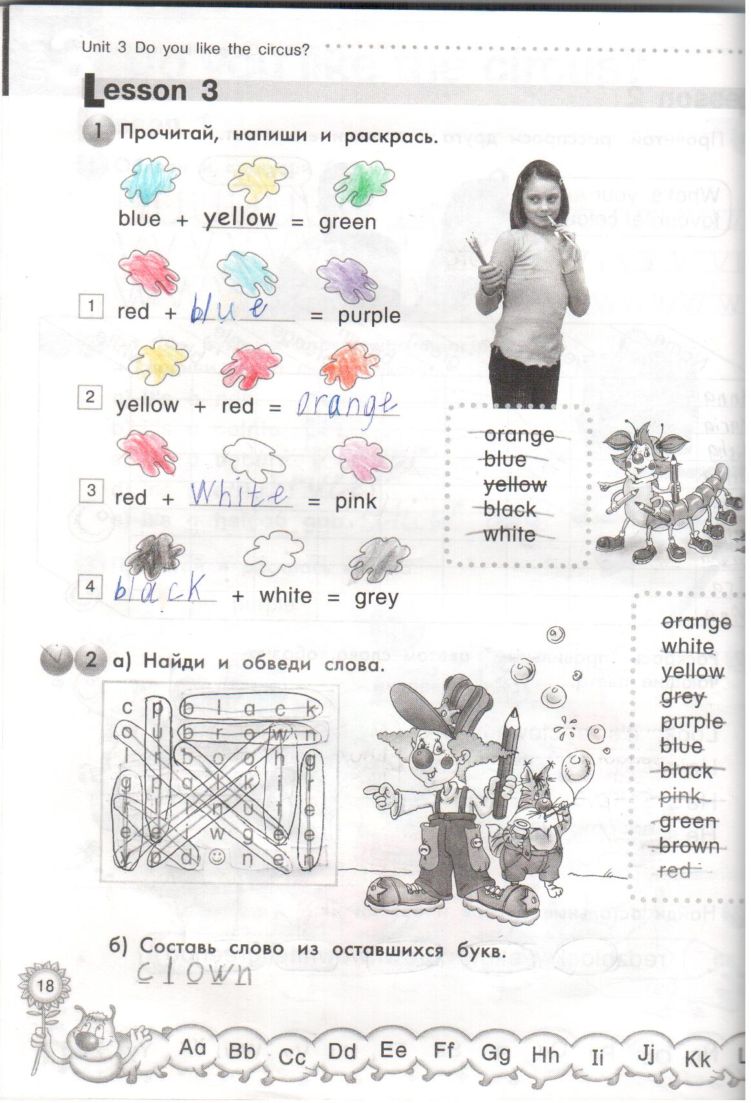 Unit 3 Do you like the circus?
Lesson 3
1 Прочитай, напиши и раскрась.
blue + yellow = green
1 red + blue = purple
2 yellow + red = orange
3 red + white = pink
4 black + white = grey
orange
blue
yellow
black
white
2 а) Найди и обведи слова.
c p b l a c k
orange
white
yellow
grey
purple
blue
black
pink
green
brown
red
б) Составь слово из оставшихся букв.
clown
18
Aa Bb Cc Dd Ee Ff Gg Hh Ii Jj Kk